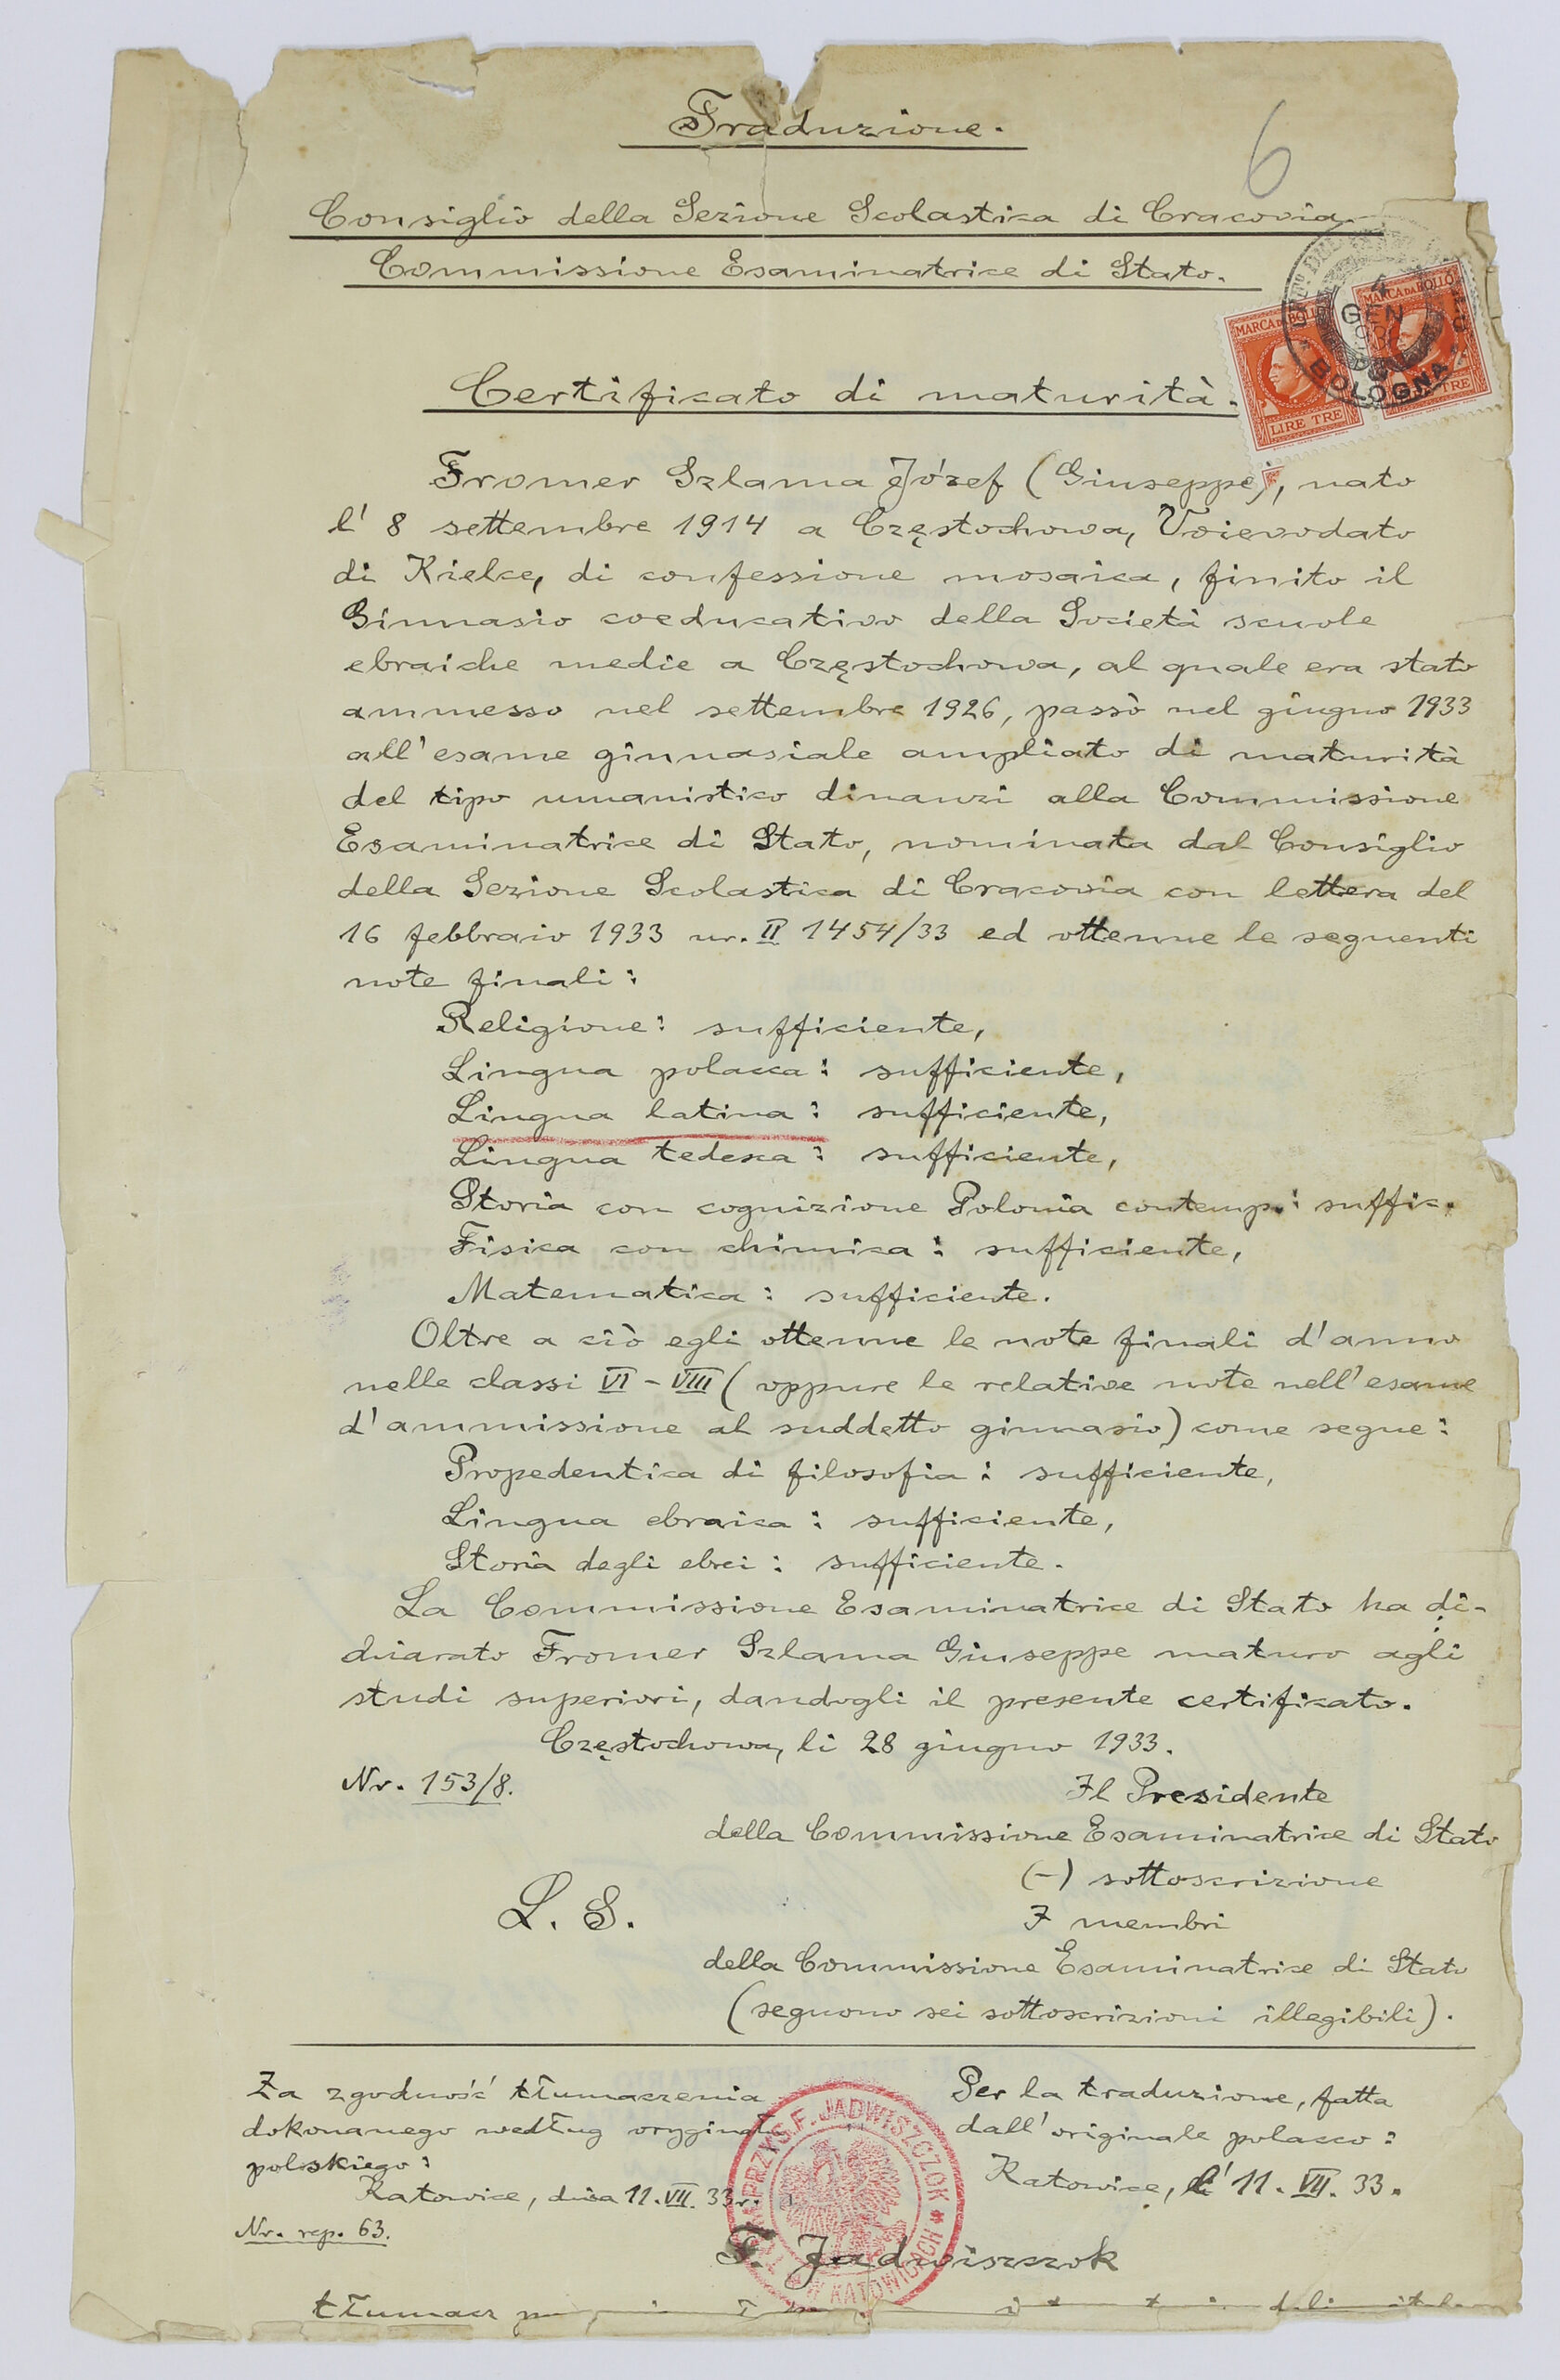 Traduzione.
6
Consiglio della Sezione Scolastica di Cracovia.
Commissione Esaminatrice di Stato.
MARCA DA BOLLO
MARCA DA BOLLO
GEN
BOLOGNA
LIRE TRE
TRE
Certificato di maturità.
Fromer Szlama Józef (Giuseppe), nato
l' 8 settembre 1914 a Częstochowa, Voievodato
di Kielce, di confessione mosaica, finito il
Ginnasio coeducativo della Società scuole
ebraiche medie a Częstochowa, al quale era stato
ammesso nel settembre 1926, passò nel giugno 1933
all'esame ginnasiale ampliato di maturità
del tipo umanistico dinanzi alla Commissione
Esaminatrice di Stato, nominata dal Consiglio
della Sezione Scolastica di Cracovia con lettera del
16 febbraio 1933 nr. II 1454/33 ed ottenne le seguenti
note finali:
Religione: sufficiente,
Lingua polacca: sufficiente,
Lingua latina: sufficiente,
Lingua tedesca: sufficiente,
Storia con cognizione Polonia contemp.: suffic.
Fisica con chimica: sufficiente,
Matematica: sufficiente.
Oltre a ciò egli ottenne le note finali d'anno
nelle classi VI - VIII (oppure le relative note nell'esame
d'ammissione al suddetto ginnasio) come segue:
Propedentica di filosofia: sufficiente,
Lingua ebraica: sufficiente,
Storia degli ebrei: sufficiente.
La Commissione Esaminatrice di Stato ha di-
chiarato Fromer Szlama Giuseppe maturo agli
studi superiori, dandogli il presente certificato.
Częstochowa, li 28 giugno 1933.
Nr. 153/8.
Il Presidente
della Commissione Esaminatrice di Stato
(-) sottoscrizione
L. S.
I membri
della Commissione Esaminatrice di Stato
(seguono sei sottoscrizioni illegibili).
Za zgodność tłumaczenia
dokonanego według oryginału
polskiego:
Katowice, dnia 11. VII. 33 r.
Nr. rep. 63.
Per la traduzione, fatta
dall' originale polacco:
Katowice, li 11. VII. 33.
TŁUM. PRZYS. F. JADWISZCZOK * W KATOWICACH *
F. Jadwiszczok
tłumacz